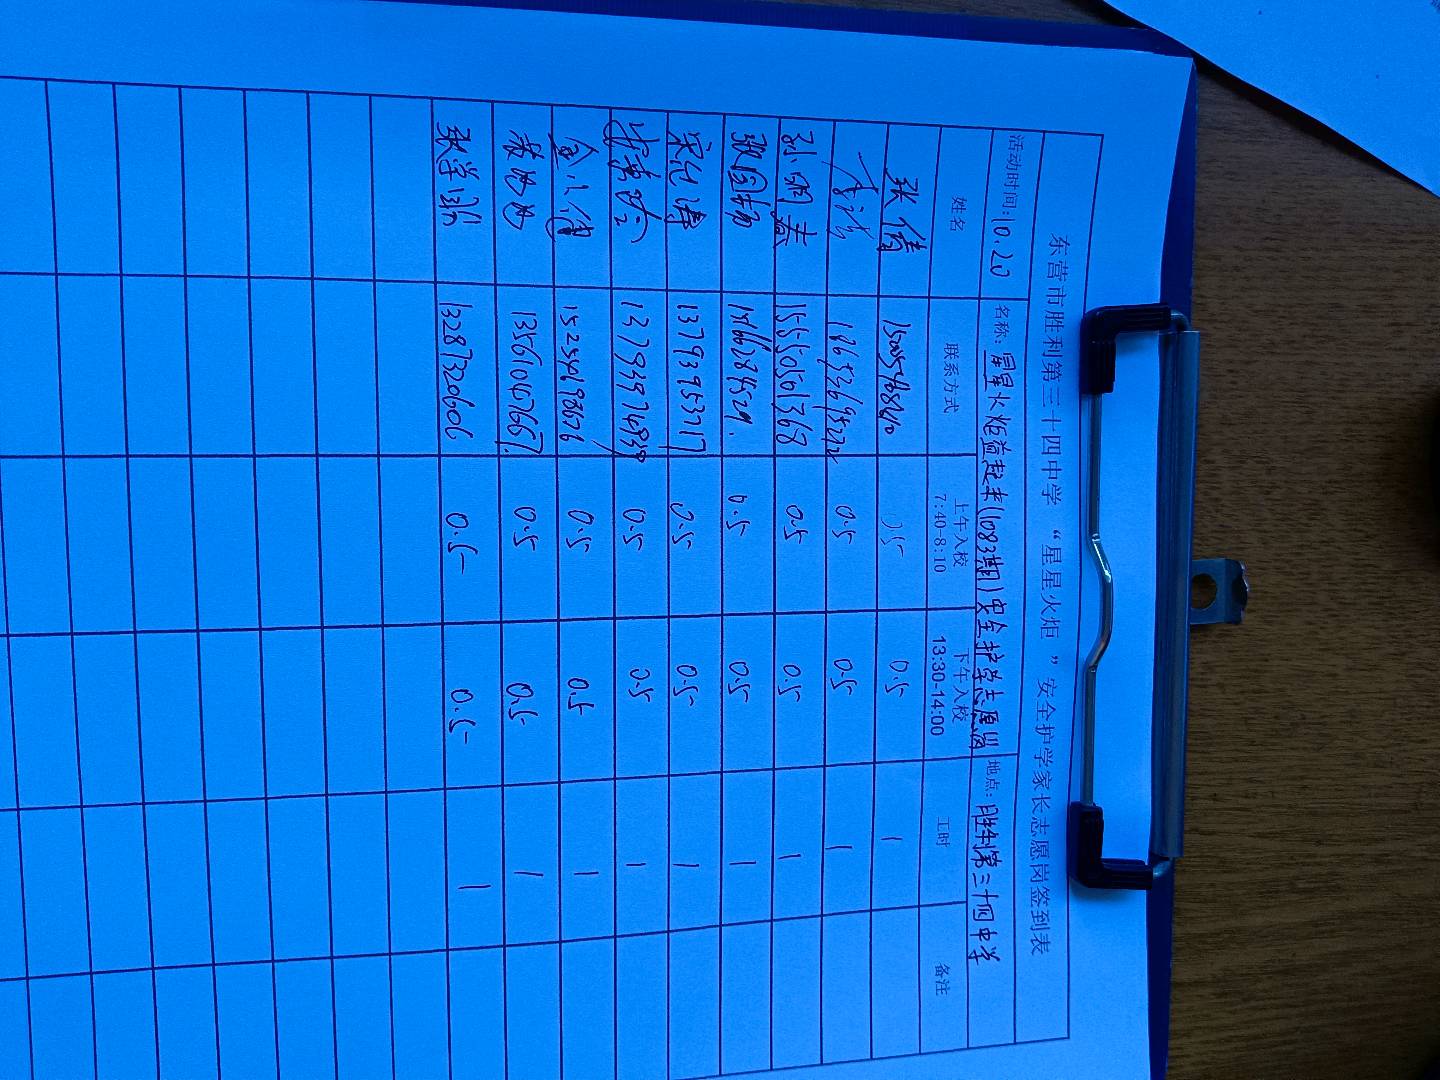 东营市胜利第三十四中学 “星星火炬” 安全护学家长志愿岗签到表
活动时间:10.20 名称:星星火炬益起来(1083期)安全护学志愿岗 地点:胜利第三十四中学
姓名 联系方式 上午入校 7:40-8:10 下午入校 13:30-14:00 工时 备注
张倩 0.5 0.5 1
李洁 0.5 0.5 1
孙明春 15550501368 0.5 0.5 1
张国扬 0.5 0.5 1
宋仕博 13793953717 0.5 0.5 1
0.5 0.5 1
15254698676 0.5 0.5 1
13561047667 0.5 0.5 1
张学 13287320606 0.5 0.5 1